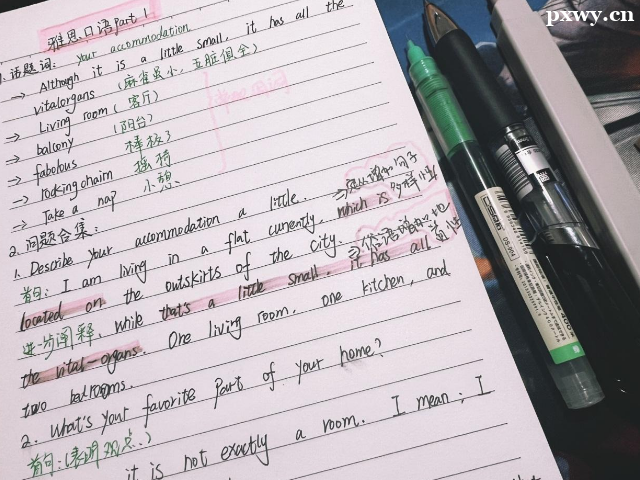 pxwy.cn
雅思口语 part 1
1. 话题词: your accommodation
→ Although it is a little small, it has all the
vitalorgans (麻雀虽小，五脏俱全)
→ Living room (客厅)
→ balcony (阳台)
→ fabolous 棒极了
→ rockingchairn 摇椅
→ Take a nap 小憩
2. 问题合集:
1. Describe your accommodation a little.
首句: I am living in a flat currently, which is
located on the outskirts of the city.
进一步阐释, while that's a little small. it has all
the vital-organs. One living room, one kitchen, and
two bedrooms.
2. What's your favorite part of your home?
首句: (表明观点.)
it is not exactly a room. I mean; I